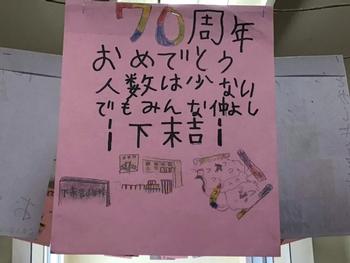 70周年
おめでとう
人数は少ない
でもみんな仲よし
!下末吉!